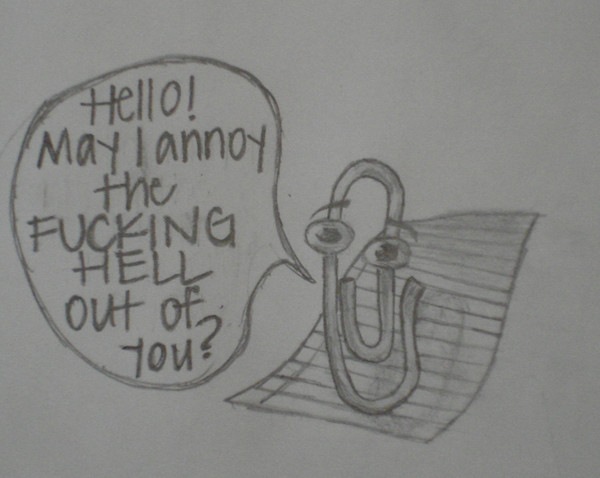 Hello!
May I annoy
the
FUCKING
HELL
out of
you?